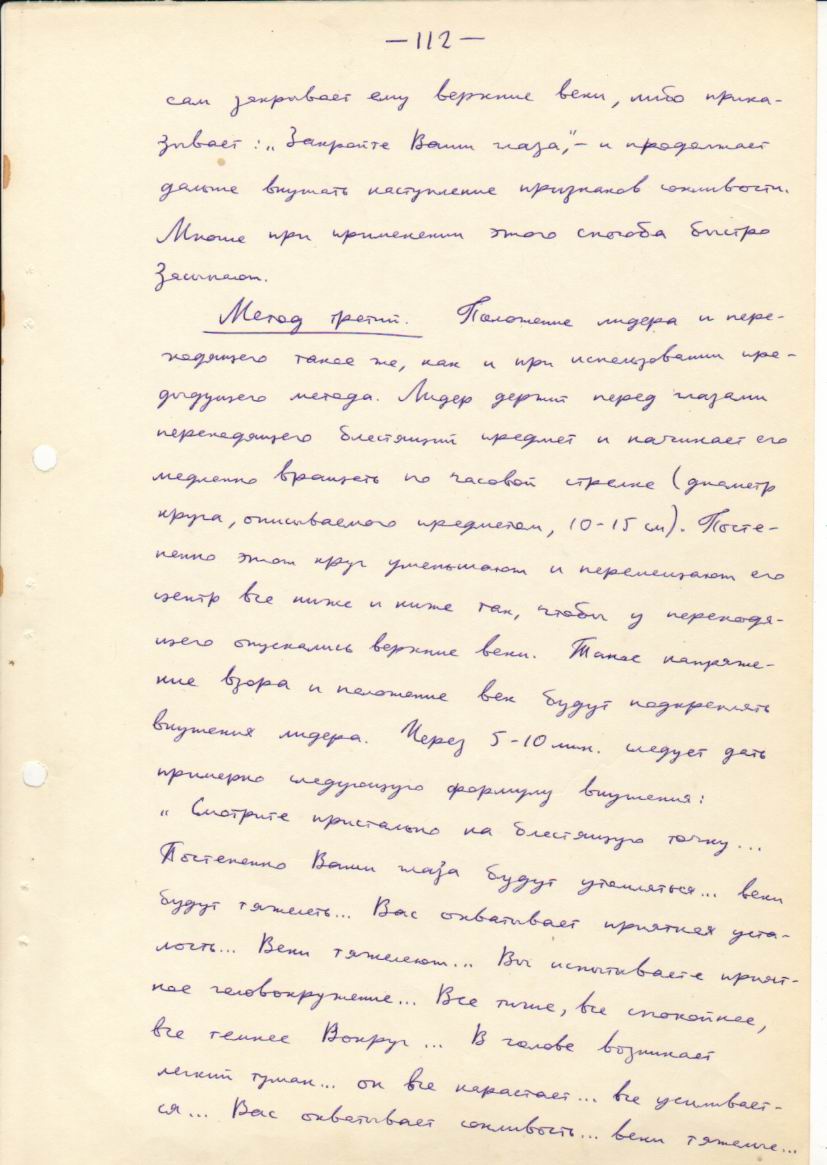 —112—
сам закрывает ему верхние веки, либо прика-
зывает: „Закройте Ваши глаза", – и продолжает
дальше внушать наступление признаков сонливости.
Многие при применении этого способа быстро
засыпают.
Метод третий. Положение лидера и пере-
ходящего такое же, как и при использовании пре-
дыдущего метода. Лидер держит перед глазами
переходящего блестящий предмет и начинает его
медленно вращать по часовой стрелке (диаметр
круга, описываемого предметом, 10-15 см). Посте-
пенно этот круг уменьшают и перемещают его
центр все ниже и ниже так, чтобы у переходя-
щего опускались верхние веки. Такое напряже-
ние взора и положение век будут подкреплять
внушения лидера. Через 5-10 мин. следует дать
примерно следующую формулу внушения:
„ Смотрите пристально на блестящую точку...
Постепенно Ваши глаза будут утомляться... веки
будут тяжелеть... Вас охватывает приятная уста-
лость... Веки тяжелеют... Вы испытываете прият-
ное головокружение... Все тише, все спокойнее,
все темнее Вокруг... В голове возникает
легкий туман... он все нарастает... все усиливает-
ся... Вас охватывает сонливость... веки тяжелые...